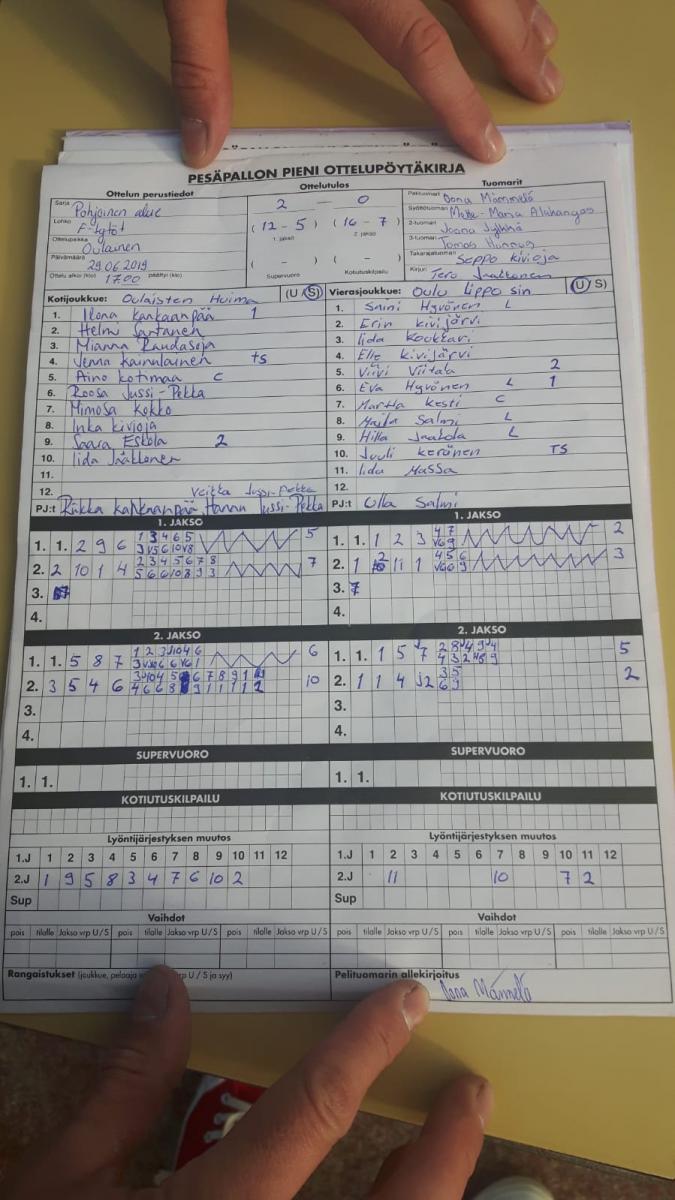 PESÄPALLON PIENI OTTELUPÖYTÄKIRJA
Ottelun perustiedot
Sarja Pohjoinen alue
Lohko F-tytöt
Ottelupaikka Oulainen
Päivämäärä 29.06.2019
Ottelu alkoi (klo) 17.00 päättyi (klo)
Ottelutulos
2 - 0
(12 - 5) (16 - 7)
1. jakso 2. jakso
( - ) ( - )
Supervuoro Kotiutuskilpailu
Tuomarit
Pelituomari Oona Männelä
Syöttötuomari Mette-Maria Alahangas
2-tuomari Joona Jylkkä
3-tuomari Tomas Hannus
Takarajatuomari Seppo Kivioja
Kirjuri Tero Jaakkonen
Kotijoukkue: Oulaisten Huima (U / S)
1. Ilona Kankaanpää 1
2. Helmi Santanen
3. Mianna Raudasoja
4. Jenna Kainulainen TS
5. Aino Kotimaa C
6. Roosa Jussi-Pekka
7. Mimosa Kokko
8. Inka Kivioja
9. Saara Eskola 2
10. Iida Jääkkonen
11.
12. Veikka Jussi-Pekka
PJ:t Riikka Kankaanpää Hannu Jussi-Pekka
Vierasjoukkue: Oulu Lippo sin (U / S)
1. Saini Hyvönen L
2. Erin Kivijärvi
3. Iida
4. Elle Kivijärvi
5. Viivi Viitala 2
6. Eva Hyvönen L 1
7. Martta Kesti C
8. Maila Salmi L
9. Hilla Jaakola L
10. Juuli Keränen TS
11. Iida Massa
12.
PJ:t Ulla Salmi
1. JAKSO
1. 1. 2 9 6 1 3 4 6 5 5
2. 2 10 1 4 2 3 4 5 6 7 8 7
3.
4.
1. JAKSO
1. 1. 1 2 3 4 7 2
2. 1 2 11 1 4 5 6 3
3. 7
4.
2. JAKSO
1. 1. 5 8 7 6
2. 3 5 4 6 10
3.
4.
2. JAKSO
1. 1. 1 5 7 5
2. 1 1 4 2
3.
4.
SUPERVUORO
1. 1.
SUPERVUORO
1. 1.
KOTIUTUSKILPAILU
KOTIUTUSKILPAILU
Lyöntijärjestyksen muutos
1.J 1 2 3 4 5 6 7 8 9 10 11 12
2.J 1 9 5 8 3 4 7 6 10 2
Sup
Lyöntijärjestyksen muutos
1.J 1 2 3 4 5 6 7 8 9 10 11 12
2.J 11 10 7 2
Sup
Vaihdot
pois tilalle Jakso vrp U / S pois tilalle Jakso vrp U / S
Vaihdot
pois tilalle Jakso vrp U / S pois tilalle Jakso vrp U / S
Rangaistukset (joukkue, pelaaja vrp U / S ja syy)
Pelituomarin allekirjoitus
Oona Männelä